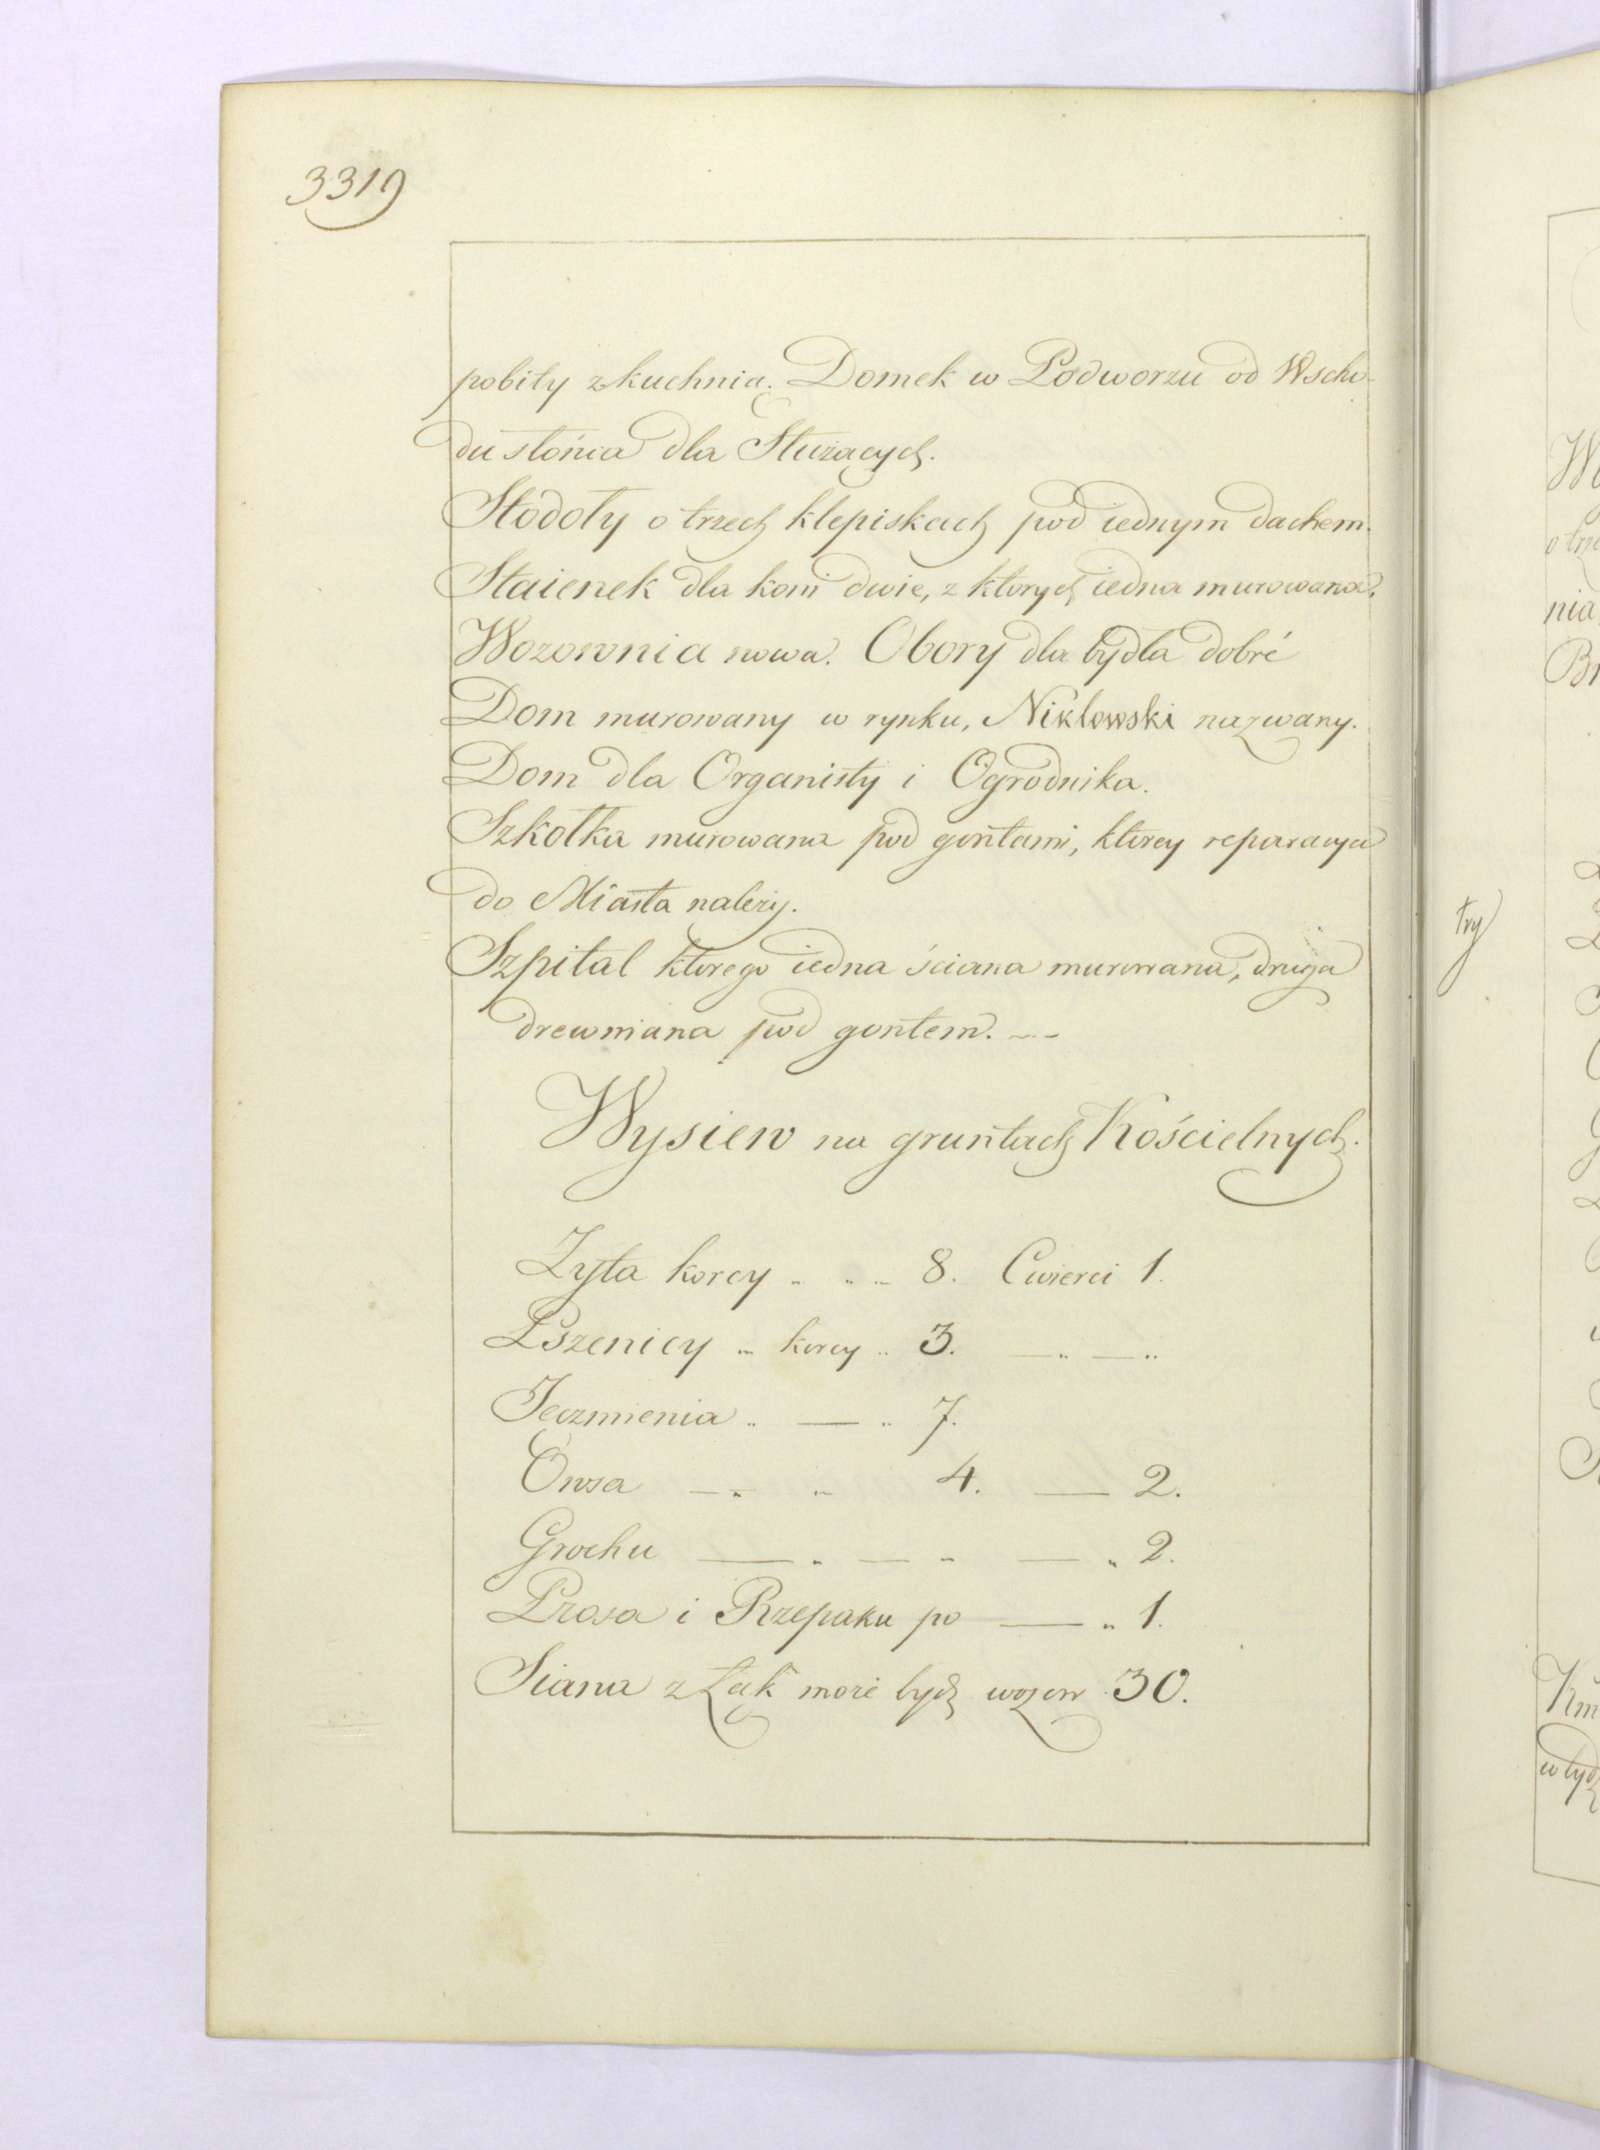 3319
pobity z kuchnią. Domek w Podworzu od Wscho-
du słońca dla Służących.
Stodoły o trzech klepiskach pod iednym dachem.
Staienek dla koni dwie, z ktorych iedna murowana.
Wozownia nowa. Obory dla bydła dobré
Dom murowany w rynku, Niklowski nazwany.
Dom dla Organisty i Ogrodnika.
Szkołka murowana pod gontami, ktorey reparacya
do Miasta należy.
Szpital ktorego iedna ściana murowana, druga
drewniana pod gontem. --
Wysiew na gruntach Kościelnych.
Zyta korcy .. .. .. 8. Cwierci 1.
Pszenicy .. korcy .. 3. — .. — ..
Jeczmienia .. — .. 7.
Owsa — .. .. 4. — 2.
Grochu — .. — .. — .. 2.
Prosa i Rzepaku po — .. 1.
Siana z Łąk może bydź wozow 30.
try